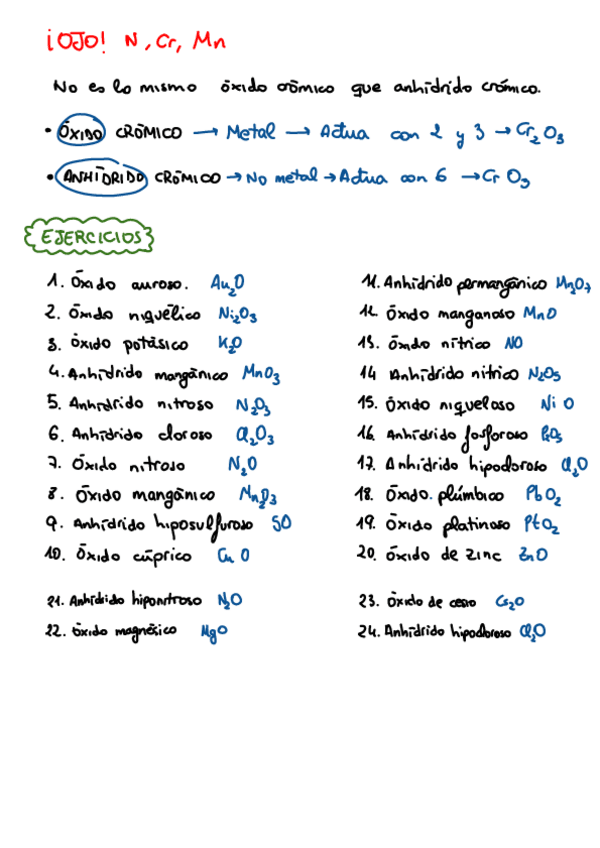 ¡OJO! N, Cr, Mn
No es lo mismo óxido crómico que anhídrido crómico.
• ÓXIDO CRÓMICO → Metal → Actua con 2 y 3 → Cr₂O₃
• ANHÍDRIDO CRÓMICO → No metal → Actua con 6 → CrO₃
EJERCICIOS
1. Óxido auroso. Au₂O
2. Óxido niquélico Ni₂O₃
3. Óxido potásico K₂O
4. Anhídrido mangánico MnO₃
5. Anhídrido nitroso N₂O₃
6. Anhídrido cloroso Cl₂O₃
7. Óxido nitroso N₂O
8. Óxido mangánico Mn₂O₃
9. Anhídrido hiposulfuroso SO
10. Óxido cúprico CuO
21. Anhídrido hiponitroso N₂O
22. Óxido magnésico MgO
11. Anhídrido permangánico Mn₂O₇
12. Óxido manganoso MnO
13. Óxido nítrico NO
14 Anhídrido nítrico N₂O₅
15. Óxido niqueloso NiO
16. Anhídrido fosforoso P₂O₃
17. Anhídrido hipocloroso Cl₂O
18. Óxido. plúmbico PbO₂
19. Óxido platinoso PtO₂
20. Óxido de zinc ZnO
23. Óxido de cesio Cs₂O
24. Anhídrido hipocloroso Cl₂O